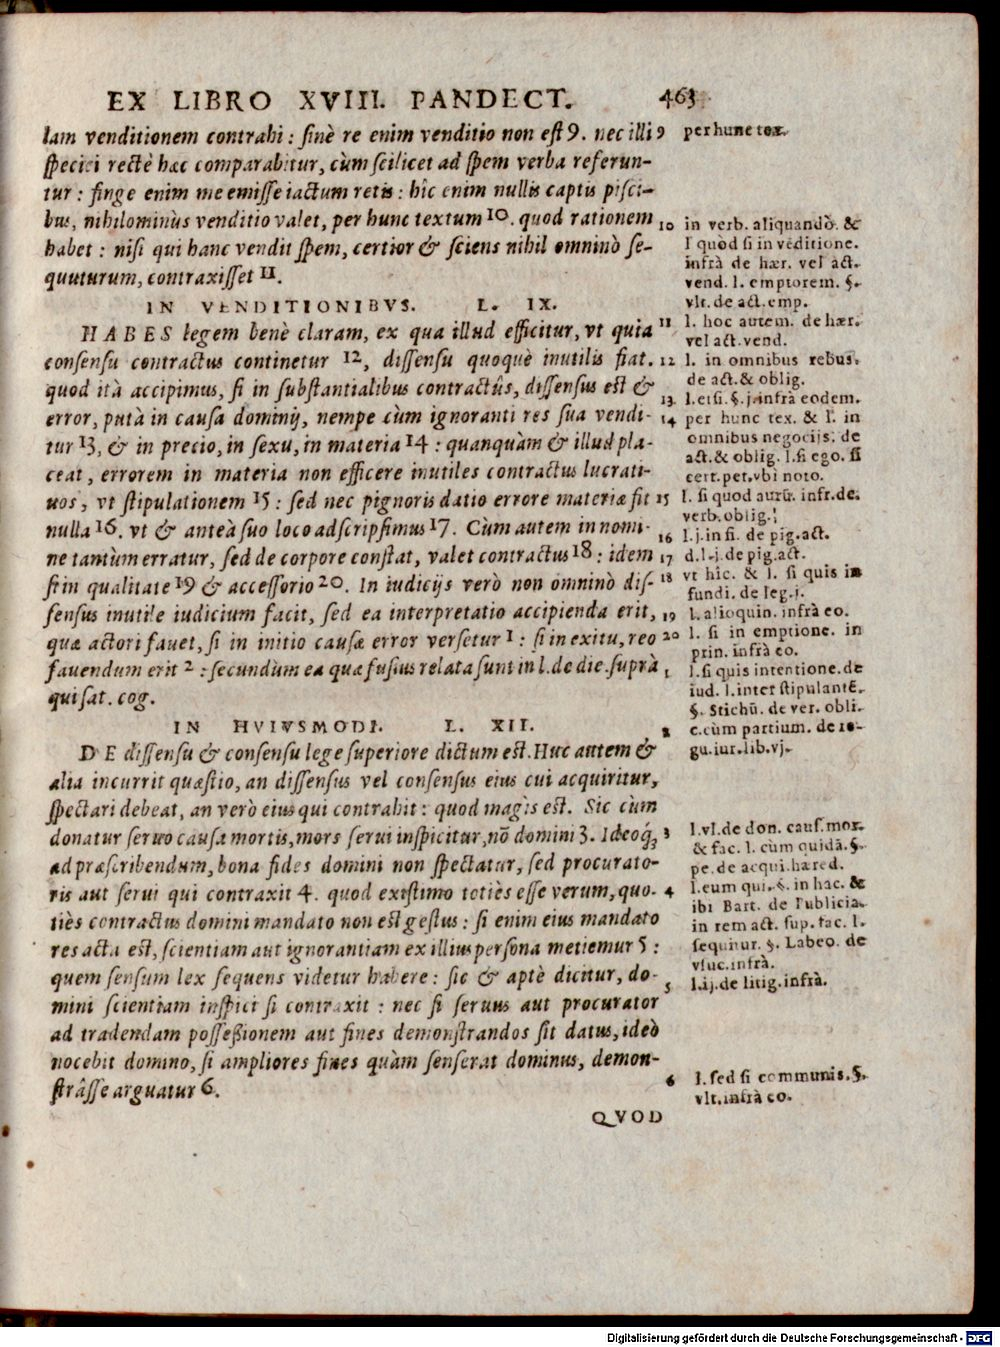 EX LIBRO XVIII. PANDECT. 463
lam venditionem contrahi : sinè re enim venditio non est 9. nec illi
speciei rectè hæc comparabitur, cùm scilicet ad spem verba referun-
tur : finge enim me emisse iactum retis : hîc enim nullis captis pisci-
bus, nihilominùs venditio valet, per hunc textum 10. quod rationem
habet : nisi qui hanc vendit spem, certior & sciens nihil omninò se-
quuturum, contraxisset 11.
IN VENDITIONIBVS. L. IX.
HABES legem benè claram, ex qua illud efficitur, vt quia
consensu contractus continetur 12, dissensu quoquè inutilis fiat.
quod ità accipimus, si in substantialibus contractûs, dissensus est &
error, putà in causa dominij, nempe cùm ignoranti res sua vendi-
tur 13, & in precio, in sexu, in materia 14 : quanquàm & illud pla-
ceat, errorem in materia non efficere inutiles contractus lucrati-
uos, vt stipulationem 15 : sed nec pignoris datio errore materiæ fit
nulla 16. vt & anteà suo loco adscripsimus 17. Cùm autem in nomi-
ne tantùm erratur, sed de corpore constat, valet contractus 18 : idem
si in qualitate 19 & accessorio 20. In iudicijs verò non omninò dis-
sensus inutile iudicium facit, sed ea interpretatio accipienda erit,
quæ actori fauet, si in initio causæ error versetur 1 : si in exitu, reo
fauendum erit 2 : secundùm ea quæ fusius relata sunt in l. de die. suprà
qui sat. cog.
IN HVIVSMODI. L. XII.
DE dissensu & consensu lege superiore dictum est. Huc autem &
alia incurrit quæstio, an dissensus vel consensus eius cui acquiritur,
spectari debeat, an verò eius qui contrahit : quod magis est. Sic cùm
donatur seruo causa mortis, mors serui inspicitur, nō domini 3. Ideoq́;
ad præscribendum, bona fides domini non spectatur, sed procurato-
ris aut serui qui contraxit 4. quod existimo totiès esse verum, quo-
tiès contractus domini mandato non est gestus : si enim eius mandato
res acta est, scientiam aut ignorantiam ex illius persona metiemur 5 :
quem sensum lex sequens videtur habere : sic & aptè dicitur, do-
mini scientiam inspici si contraxit : nec si seruus aut procurator
ad tradendam possessionem aut fines demonstrandos sit datus, ideò
nocebit domino, si ampliores fines quàm senserat dominus, demon-
strâsse arguatur 6.
QVOD
9 per hunc tex.
10 in verb. aliquandò. &
l quòd si in vēditione.
infrà de hær. vel act.
vend. l. emptorem. §.
vlt. de act. emp.
11 l. hoc autem. de hær.
vel act. vend.
12 l. in omnibus rebus.
de act. & oblig.
13. l. etsi. §. j. infrà eodem.
14 per hunc tex. & l. in
omnibus negocijs. de
act. & oblig. l. si ego. ff
cert. pet. vbi noto.
15 l. si quod aurū. infr. de.
verb. oblig.
16 l. j. in fi. de pig. act.
17 d. l. j. de pig. act.
18 vt hîc. & l. si quis in
fundi. de leg. j.
19 l. alioquin. infrà eo.
20 l. si in emptione. in
prin. infrà eo.
1 l. si quis intentione. de
iud. l. inter stipulantē.
§. Stichū. de ver. obli.
2 c. cùm partium. de re-
gu. iur. lib. vj.
3 l. vl. de don. caus. mor.
& fac. l. cùm quidā. §.
pe. de acqui. hæred.
4 l. eum qui. §. in hac. &
ibi Bart. de Publicia.
in rem act. sup. fac. l.
sequitur. §. Labeo. de
vsuc. infrà.
5 l. ij. de litig. infrà.
6 l. sed si communis. §.
vlt. infrà eo.
Digitalisierung gefördert durch die Deutsche Forschungsgemeinschaft - DFG